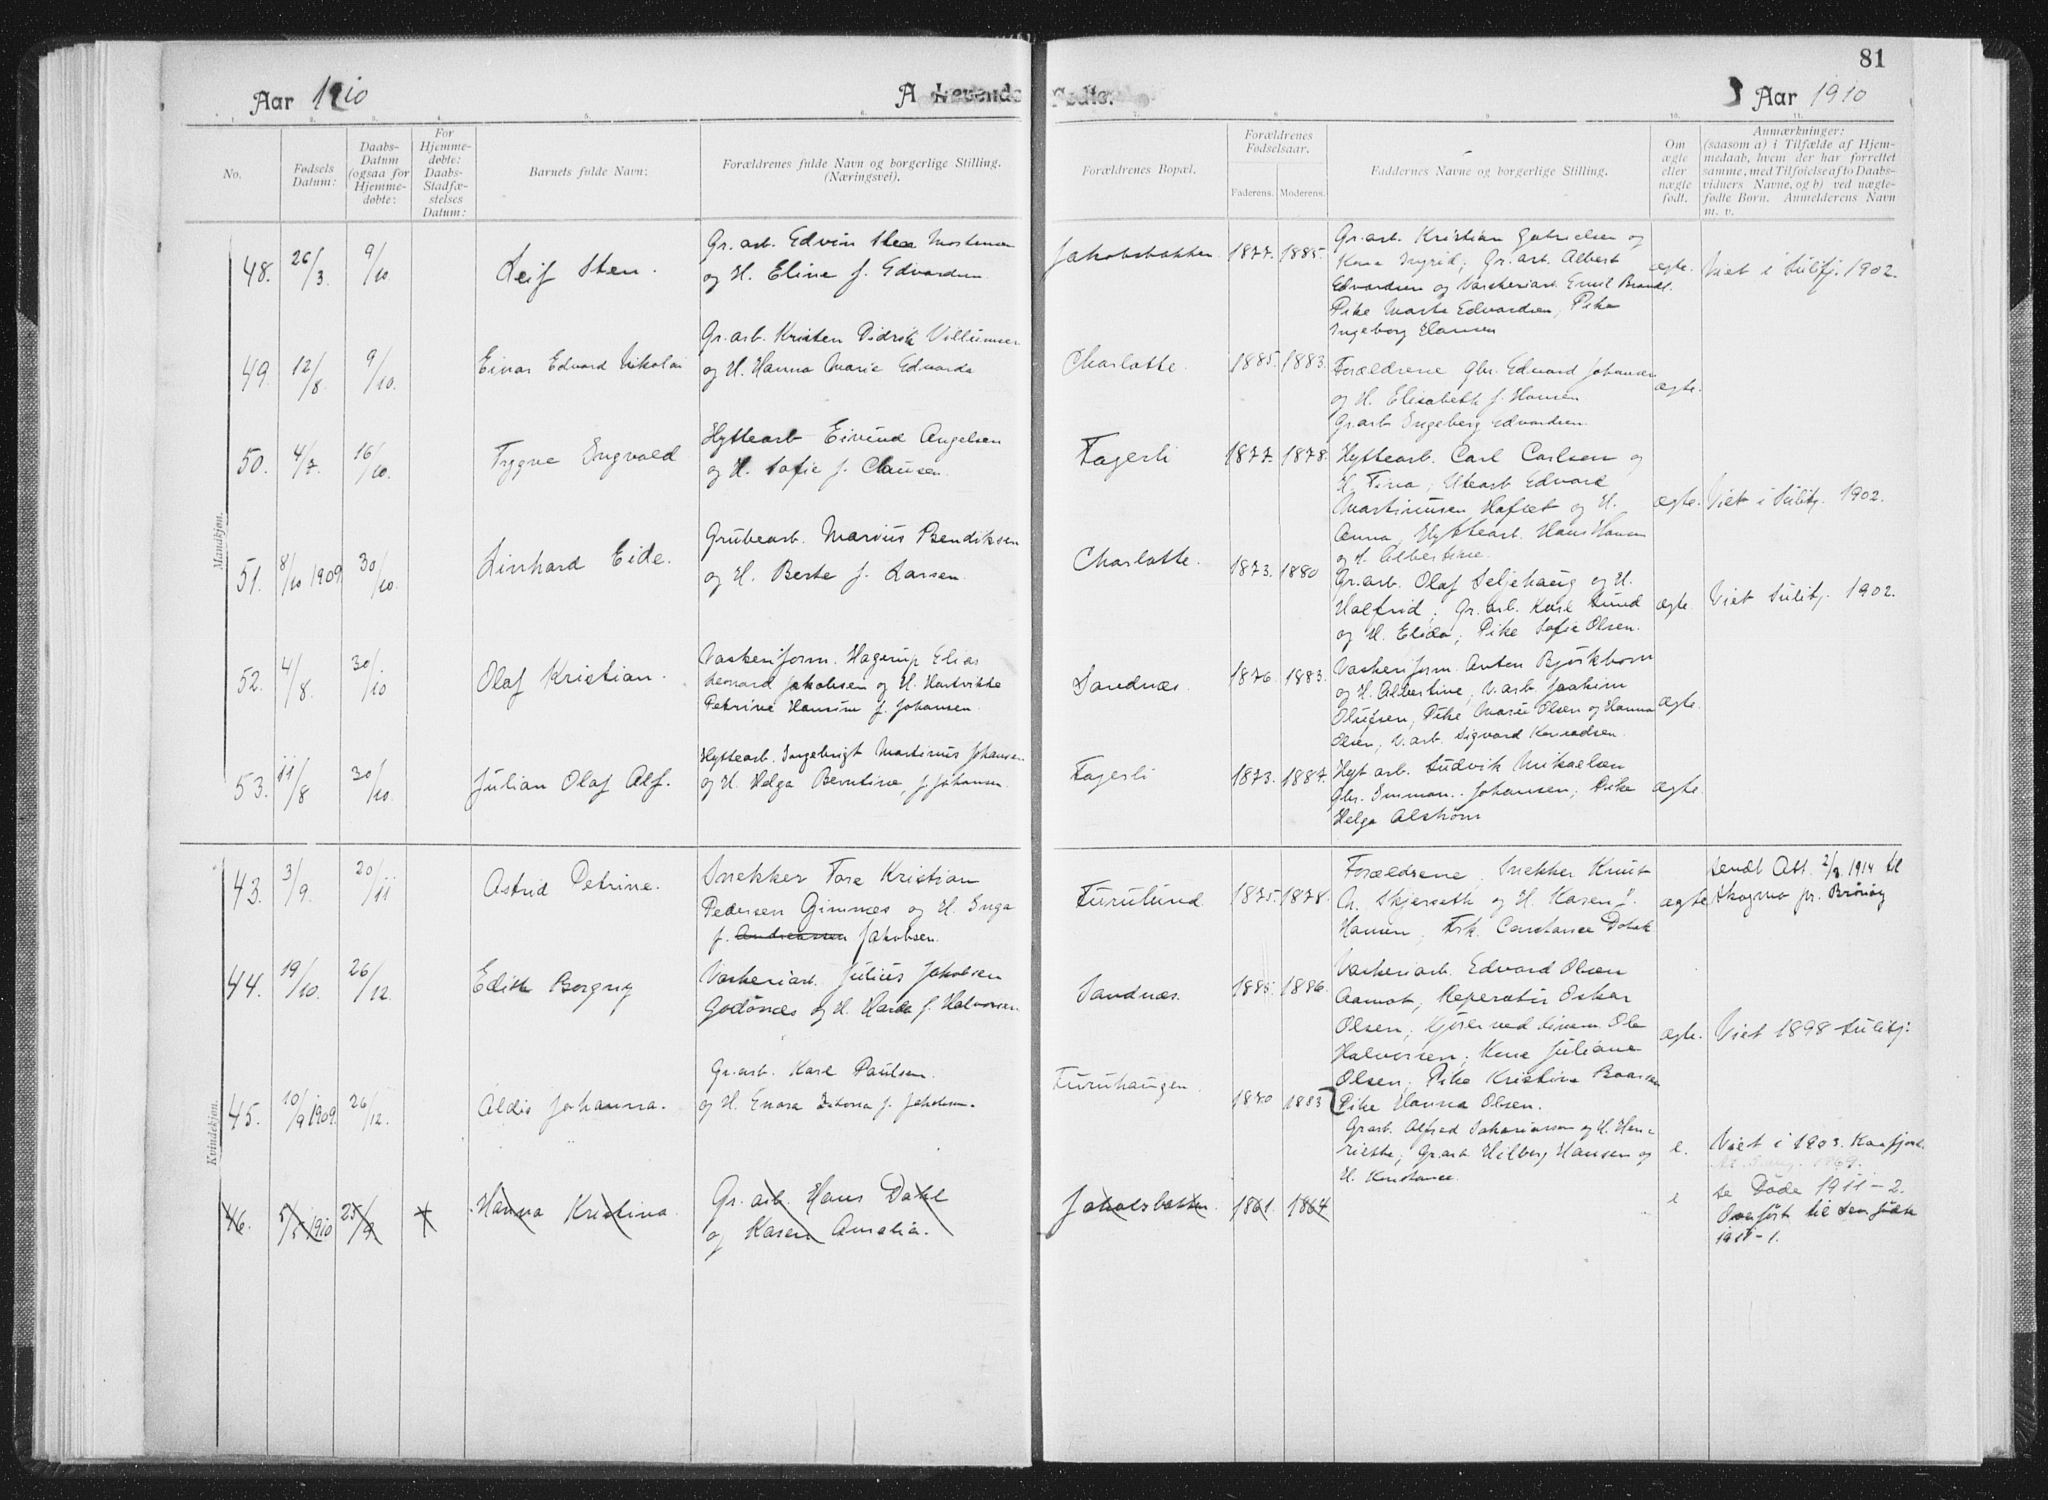 81
Aar 1910
A Levende Fødte.
Aar 1910
1. 2. 3. 4. 5. 6. 7. 8. 9. 10. 11.
No.
Fødsels
Datum:
Daabs-
Datum
(ogsaa for
Hjemme-
døbte:
For
Hjemme-
døbte:
Daabs-
Stadfæ-
stelses
Datum:
Barnets fulde Navn:
Forældrenes fulde Navn og borgerlige Stilling.
(Næringsvei).
Forældrenes Bopæl.
Forældrenes
Fødselsaar.
Faderens. Moderens.
Faddernes Navne og borgerlige Stilling.
Om
ægte
eller
nægte
født.
Anmærkninger:
(saasom a) i Tilfælde af Hjem-
medaab, hvem der har forrettet
samme, med Tilføielse af to Daabs-
vidners Navne, og b) ved nægte-
fødte Børn. Anmelderens Navn
m. v.
Mandkjøn.
48. 26/3 9/10
Leif Sten.
Gr. arb. Edvin Sten Mortensen
og H. Eline f. Edvardsen
Jakobsbakken 1877. 1885.
Gr. arb. Kristian Gabrielsen og
Kona Ingrid; Gr. arb. Albert
Edvardsen og Vaskeriarb. Emil Brandl.
Pike Marta Edvardsen, Pike
Ingeborg Hansen
ægte. Viet i Sulitj. 1902.
49. 12/8 9/10.
Einar Edvard Nikolai
Gr. arb. Kristen Didrik Villumsen
og H. Hanna Marie Edvarda
Charlotte. 1885. 1883.
Forældrene Gbr. Edvard Johansen
og H. Elisabeth f. Hansen
Gr. arb Ingeberg Edvardsen.
ægte.
50. 4/7. 16/10.
Trygve Ingvald
Hyttearb Eivind Angelsen
og H. Sofie f. Clausen.
Fagerli 1877. 1878.
Hyttearb. Carl Carlsen og
H. Tina; Utearb Edvard
Martinusen Haflet og H.
Anna, Hyttearb. Hans Hansen
og H. Albertine.
ægte. Viet i Sulitj. 1902.
51. 8/10 1909 30/10.
Linhard Eide.
Grubearb. Marius Bendiksen
og H. Berte f. Larsen.
Charlotte. 1873. 1880
Gr. arb. Olaf Seljehaug og H.
Halfrid; Gr. arb. Karl Lund
og H. Elida; Pike Sofie Olsen.
ægte. Viet Sulitj. 1902.
52. 4/8. 30/10
Olaf Kristian.
Vaskeriform. Hagerup Elias
Leonard Jakobsen og H. Hartvikke
Petrine Hansine f. Johansen.
Sandnæs. 1876. 1883.
Vaskeriform. Anten Bjørkbom
og H. Albertine, V. arb. Joakim
Olufsen, Pike Marie Olsen og Hanna
Olsen, V. arb. Sigvard Konradsen.
ægte.
53. 11/8 30/10.
Julian Olaf Alf.
Hyttearb. Ingebrigt Martinus Johansen
og H. Helga Berntine, f. Johansen
Fagerli 1873. 1887.
Hyt arb. Ludvik Mikaelsen
Gbr. Emman. Johansen; Pike
Helga Alstrøm
ægte.
Kvindekjøn.
43. 3/9. 20/11
Astrid Petrine.
Snekker Tore Kristian
Pedersen Gimnæs og H. Inga
f. Andreassen Jakobsen.
Furulund 1875. 1878.
Forældrene, Snekker Knut
A. Skjerseth og H. Karen f.
Hansen, Frk. Constance
ægte Sendt Att. 2/3 1914 til
Skogmo pr. Brønøy
44. 19/10. 26/12.
Edith Borgny
Vaskeriarb. Julius Jakobsen
Godönes og H. Harda f. Halvorsen
Sandnæs. 1885. 1886.
Vaskeriarb. Edvard Olsen
Aamot, Reperatør Oskar
Olsen, Kjører ved linem. Ole
Halvorsen; Kona Juliane
Olsen, Pike Kristine Baarsen
Pike Hanna Olsen.
ægte. Viet 1898 Sulitj.
45. 10/9 1909. 26/12.
Aldis Johanna.
Gr. arb. Karl Paulsen.
og H. Enora f. Jakobsen.
Furuhaugen 1870 1883
Gr. arb. Alfred Sakariassen og H. Hen-
riette; Gr. arb. Hilberg Hansen og
H. Konstance.
e. Viet i 1903. Kaafjord.
46. 5/5 1910 25/9 +
Hanna Kristina.
Gr. arb. Hans Dahl
og Karen Amalia.
Jakobsbakken. 1861. 1864
e se Døde 1911-2.
Overført til Dem fødte
1911-1.